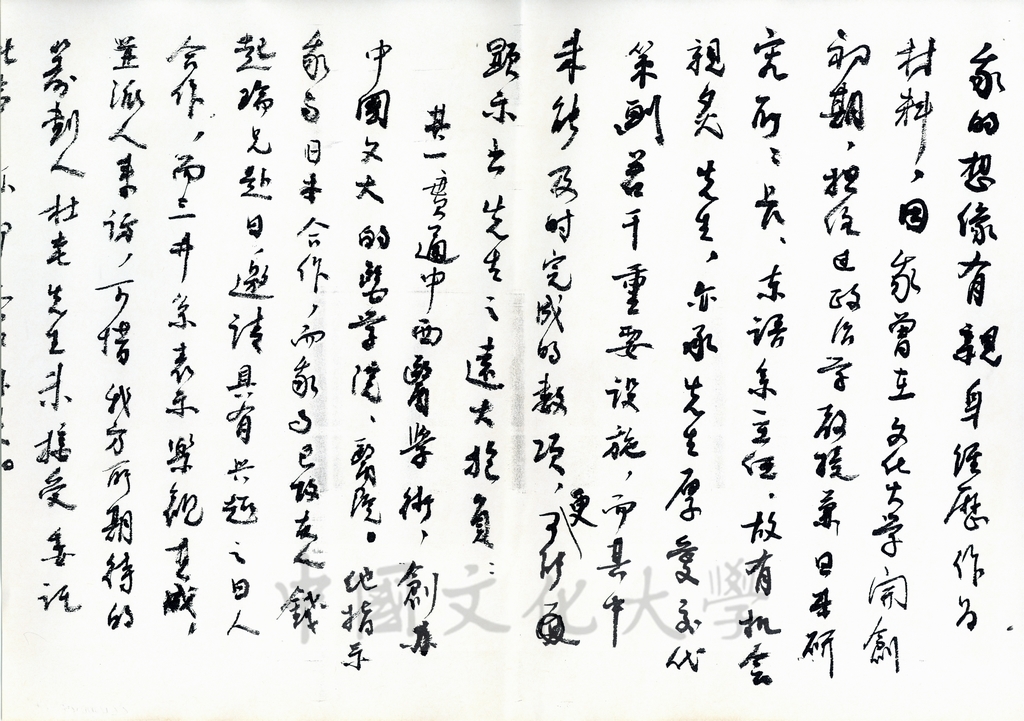 我的想像有親身經歷作為
材料，因我曾在文化大学開創
初期，担任过政治学教授兼日本研
究所之長、東語系主任。故有机会
親炙先生，亦承先生厚愛交代
策劃若干重要設施，而其中
未能及时完成的数項，更可能
顯示出先生之遠大抱負：
其一貫通中西醫學術，創办
中國文大的醫学院、醫院。他指示
我与日本合作，而我与已故友人錢
起瑞兄赴日，邀請具有兴趣之日人
合作，而三井系表示樂觀其成，
並派人来訪，可惜我方所期待的
籌劃人杜老先生未接受委託
中國文化大學